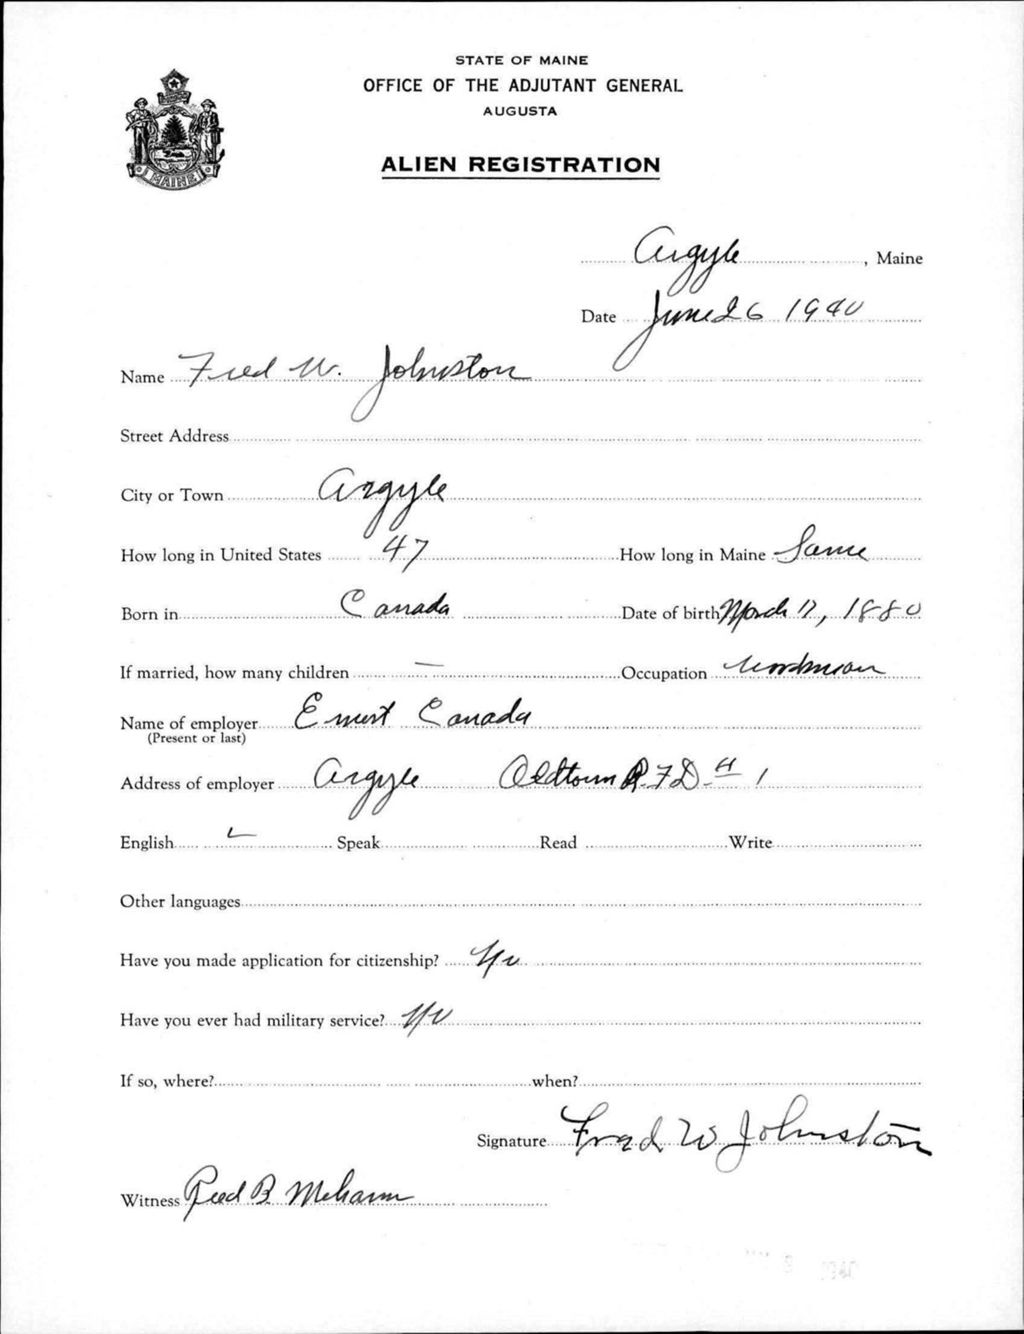 STATE OF MAINE
OFFICE OF THE ADJUTANT GENERAL
AUGUSTA
ALIEN REGISTRATION
MAINE
Argyle, Maine
Date June 26 1940
Name Fred W. Johnston
Street Address
City or Town Argyle
How long in United States 47 How long in Maine Same
Born in Canada Date of birth March 17, 1880
If married, how many children — Occupation woodsman
Name of employer Ernest Canada
(Present or last)
Address of employer Argyle Oldtown R.F.D. # 1
English Speak Read Write
Other languages
Have you made application for citizenship? No
Have you ever had military service? No
If so, where? when?
Signature Fred W Johnston
Witness Reed B.